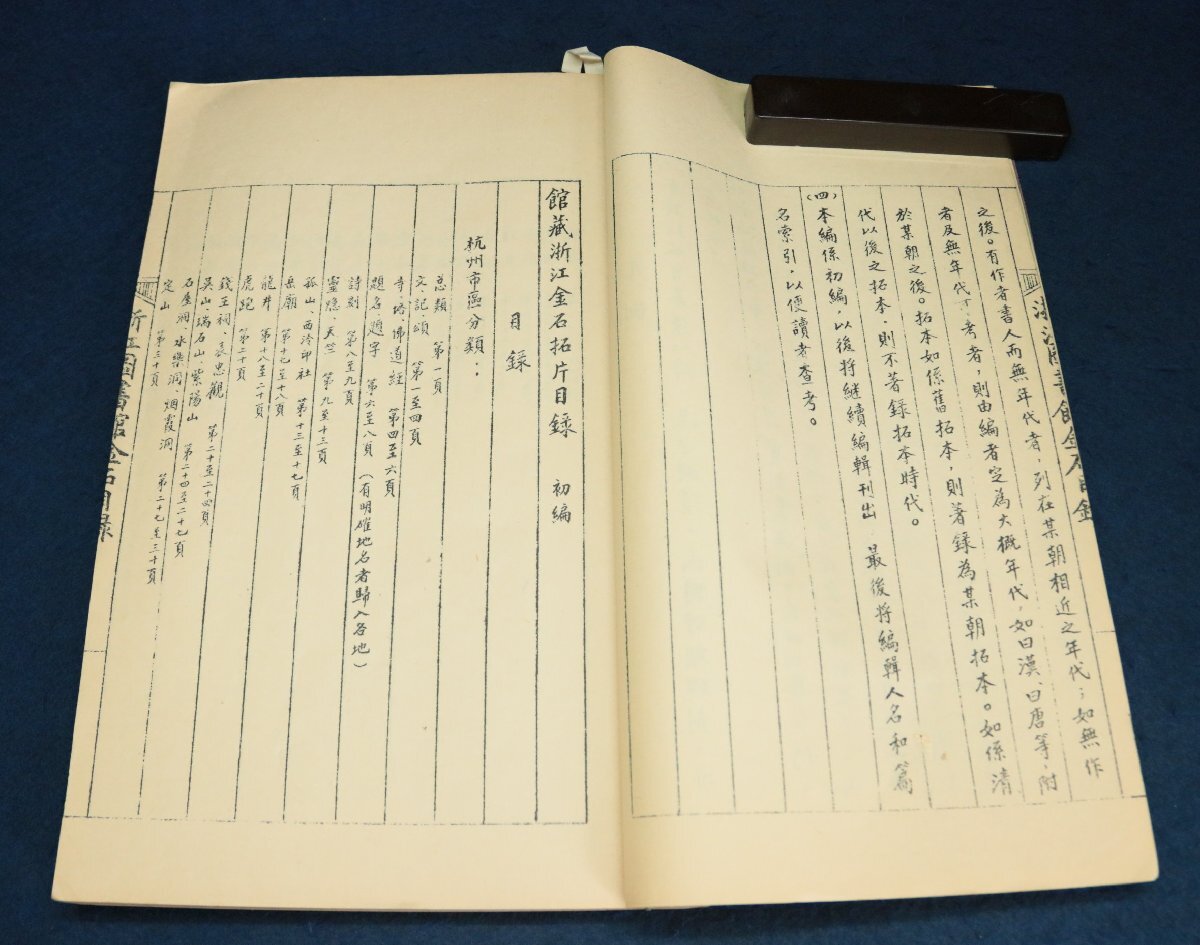 之後。有作者書人而無年代者,列在某朝相近之年代;如無作
者及無年代可考者,則由編者定為大概年代,如曰漢、曰唐等,附
於某朝之後。拓本如係舊拓本,則著錄為某朝拓本。如係清
代以後之拓本,則不著錄拓本時代。
(四)本編係初編,以後將继續編輯刊出 最後將編輯人名和篇
名索引,以便讀者查考。
館藏浙江金石拓片目錄 初編
目錄
杭州市區分類:
总類 第一頁
文、記、頌 第一至四頁
寺、塔、佛道經 第四至六頁
題名、題字 第六至八頁(有明確地名者歸入各地)
詩刻 第八至九頁
靈隱、天竺 第九至十三頁
孤山、西冷印社 第十三至十七頁
岳廟 第十七至十八頁
龍井 第十八至二十頁
虎跑 第二十頁
錢王祠、表忠觀 第二十至二十四頁
吳山、瑞石山、紫陽山 第二十四至二十七頁
石屋洞、水樂洞、烟霞洞 第二十七至三十頁
定山 第三十頁
浙江圖書館金石目錄